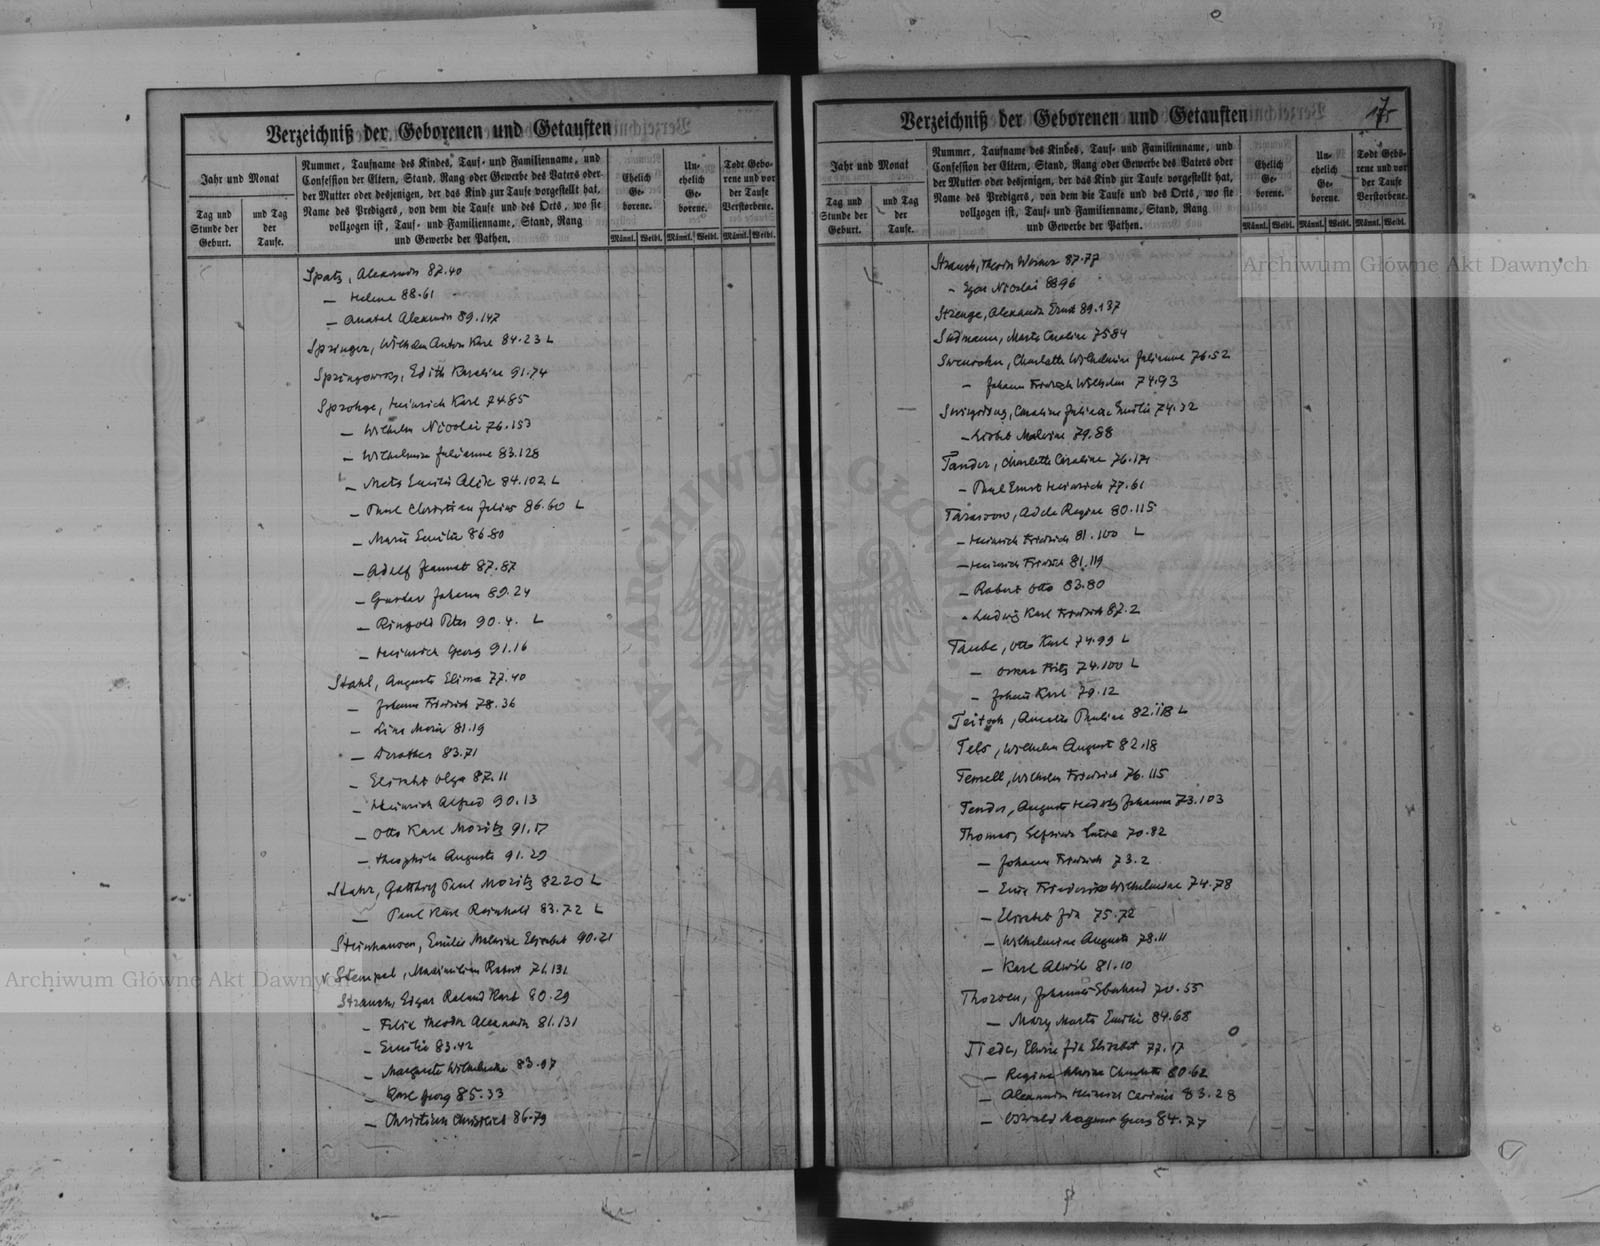 Verzeichniß der Geborenen und Getauften
Jahr und Monat
Tag und
Stunde der
Geburt.
und Tag
der
Taufe.
Nummer, Taufname des Kindes, Tauf- und Familienname, und
Confession der Eltern, Stand, Rang oder Gewerbe des Vaters oder
der Mutter oder desjenigen, der das Kind zur Taufe vorgestellt hat,
Name des Predigers, von dem die Taufe und des Orts, wo sie
vollzogen ist, Tauf- und Familienname, Stand, Rang
und Gewerbe der Pathen.
Ehelich
Ge-
borene.
Un-
ehelich
Ge-
borene.
Todt Gebo-
rene und vor
der Taufe
Verstorbene.
Männl. Weibl. Männl. Weibl. Männl. Weibl.
Spatz, Alexander 87.40
— Helene 88.61
— Anatol Alexander 89.147
Springer, Wilhelm Anton Karl 84.23 L
Springowsky, Edith Karoline 91.74
Sprohge, Heinrich Karl 74.85
— Wilhelm Nicolai 76.153
— Wilhelmine Julianne 83.128
— Meta Emilie Alide 84.102 L
— Paul Christian Julius 86.60 L
— Marie Emilie 86.80
— Adolf Jeannot 87.87
— Gustav Johann 89.24
— Ringold Peter 90.4. L
— Heinrich Georg 91.16
Stahl, Auguste Elima 77.40
— Johann Friedrich 78.36
— Line Marie 81.19
— Dorothea 83.71
— Elisabet Olga 87.11
— Heinrich Alfred 90.13
— Otto Karl Moritz 91.17
— Theophile Auguste 91.29
Stahr, Gotthard Paul Moritz 82.20 L
— Paul Karl Reinhold 83.72 L
Steinhausen, Emilie Malwine Elisabet 90.21
v. Stempel, Maximilian Robert 71.131
Strauch, Edgar Roland Karl 80.29
— Felix Theodor Alexander 81.131
— Emilie 83.42
— Margarete Wilhelmine 83.97
— Karl Georg 85.33
— Christian Christlieb 86.79
Verzeichniß der Geborenen und Getauften
175
Jahr und Monat
Tag und
Stunde der
Geburt.
und Tag
der
Taufe.
Nummer, Taufname des Kindes, Tauf- und Familienname, und
Confession der Eltern, Stand, Rang oder Gewerbe des Vaters oder
der Mutter oder desjenigen, der das Kind zur Taufe vorgestellt hat,
Name des Predigers, von dem die Taufe und des Orts, wo sie
vollzogen ist, Tauf- und Familienname, Stand, Rang
und Gewerbe der Pathen.
Ehelich
Ge-
borene.
Un-
ehelich
Ge-
borene.
Todt Gebo-
rene und vor
der Taufe
Verstorbene.
Männl. Weibl. Männl. Weibl. Männl. Weibl.
Strauch, Theodor Werner 87.77
— Egon Nicolai 88.96
Strenge, Alexander Ernst 89.137
Sudmann, Marta Caroline 75.84
Charlotte Wilhelmine Julianne 76.52
— Johann Friedrich Wilhelm 74.93
Caroline Julianne Emilie 74.32
— Lisbet Malwine 79.88
Tander, Charlotte Caroline 76.171
— Paul Ernst Heinrich 77.61
Tarasow, Adele Regine 80.115
— Heinrich Friedrich 81.100 L
— Heinrich Friedrich 81.119
— Robert Otto 83.80
— Ludwig Karl Friedrich 87.2
Taube, Otto Karl 74.99 L
— Oskar Fritz 74.100 L
— Johann Karl 79.12
Amalie Pauline 82.118 L
Tels, Wilhelm August 82.18
Temell, Wilhelm Friedrich 76.115
Tender, Auguste Hedwig Johanna 73.103
Thomas, Luise 70.82
— Johann Friedrich 73.2
— Emma Friederike Wilhelmine 74.78
— Elisabet Ida 75.72
— Wilhelmine Auguste 78.11
— Karl Alwil 81.10
Thorsen, Johannes Eberhard 70.55
— Mary Marta Emilie 84.68
Tiede, Elwire Ida Elisabet 77.17
— Regine Malwine Charlotte 80.62
— Alexander Heinrich 83.28
— Oswald Magnus Georg 84.77
Archiwum Główne Akt Dawnych
Archiwum Główne Akt Dawnych
ARCHIWUM GŁÓWNE AKT DAWNYCH